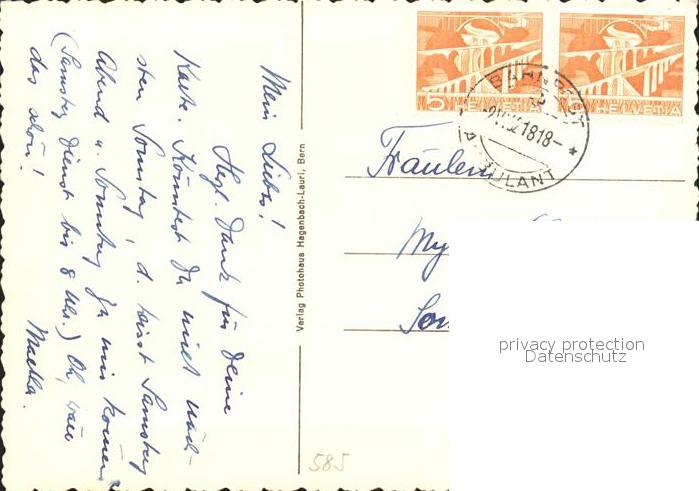 Mein Liebes!
Hzl. Dank für Deine
Karte. Könntest Du nicht näch-
sten Sonntag, d. heisst Samstag
Abend u. Sonntag zu mir kommen?
(Samstag Dienst bis 8 Uhr.) Oh, wär
das schön!
Martha.
Verlag Photohaus Hagenbach-Lauri, Bern
585
5 HELVETIA
5 HELVETIA
BAHNPOST
1818-
AMBULANT
Fräulein
My
Son
privacy protection
Datenschutz